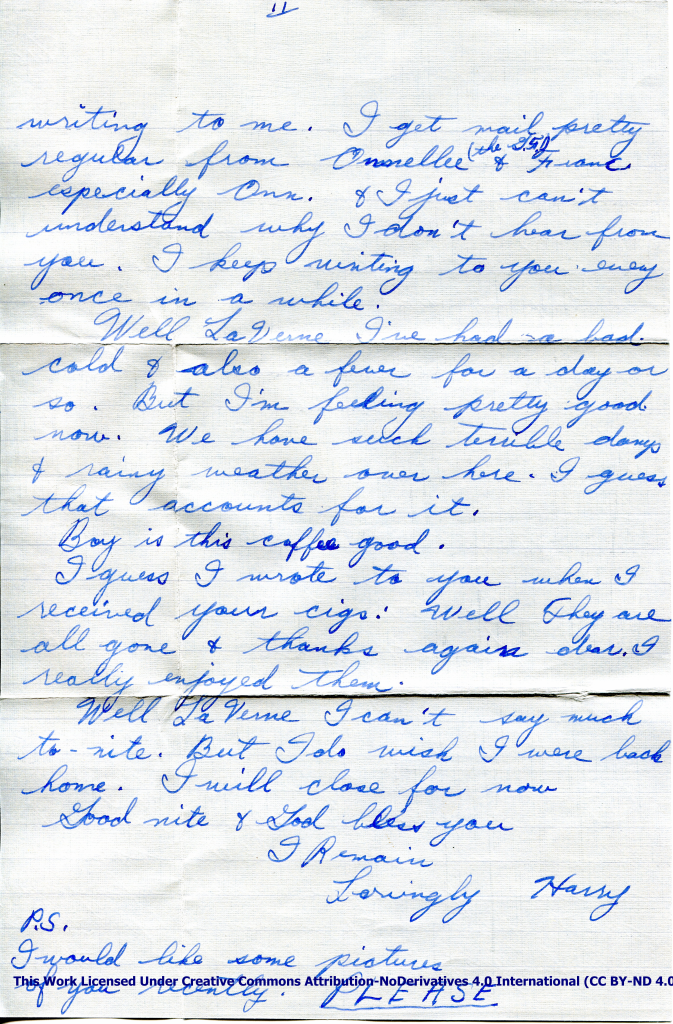 11
writing to me. I get mail pretty
(the S.G.)
regular from Onnellee & Franc.
especially Onn. & I just can't
understand why I don't hear from
you. I keep writing to you every
once in a while.
Well LaVerne I've had a bad
cold & also a fever for a day or
so. But I'm feeling pretty good
now. We have such terrible damp
& rainy weather over here. I guess
that accounts for it.
Boy is this coffee good.
I guess I wrote to you when I
received your cigs. Well They are
all gone & thanks again dear. I
really enjoyed them.
Well LaVerne I can't say much
to-nite. But I do wish I were back
home. I will close for now
Good nite & God bless you
I Remain
Lovingly Harry
P.S.
I would like some pictures
This Work Licensed Under Creative Commons Attribution-NoDerivatives 4.0 International (CC BY-ND 4.0
of you recently. PLEASE